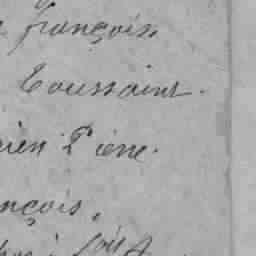 françois
Toussaint.
ien Pierre.
nçois,